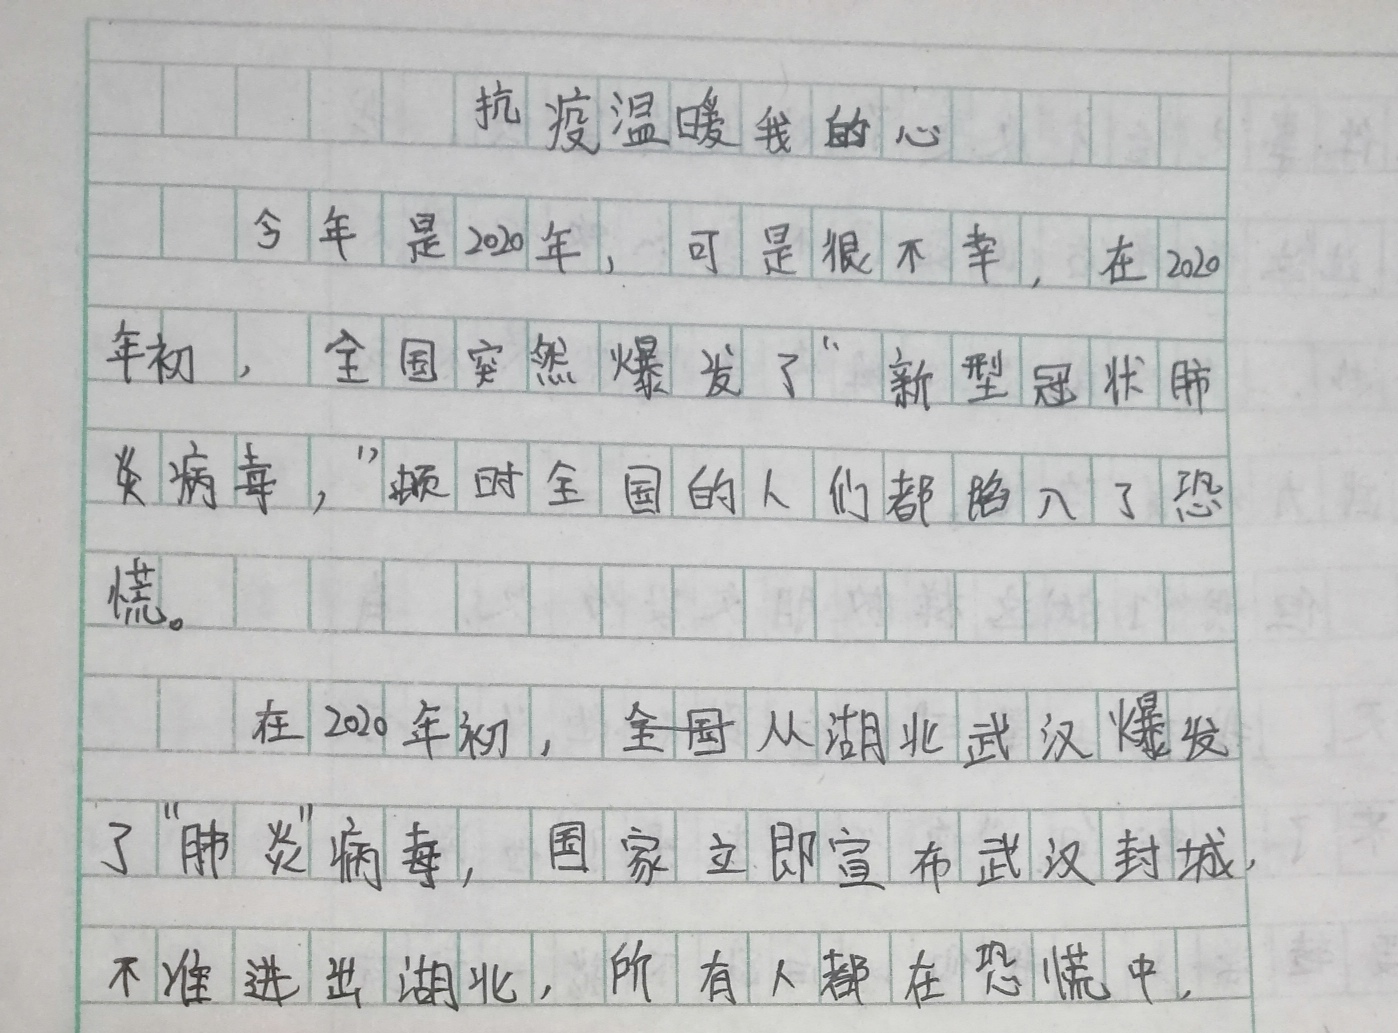 抗疫温暖我的心
今年是2020年，可是很不幸，在2020
年初，全国突然爆发了“新型冠状肺
炎病毒，”顿时全国的人们都陷入了恐
慌。
在2020年初，全国从湖北武汉爆发
了“肺炎”病毒，国家立即宣布武汉封城，
不准进出湖北，所有人都在恐慌中，